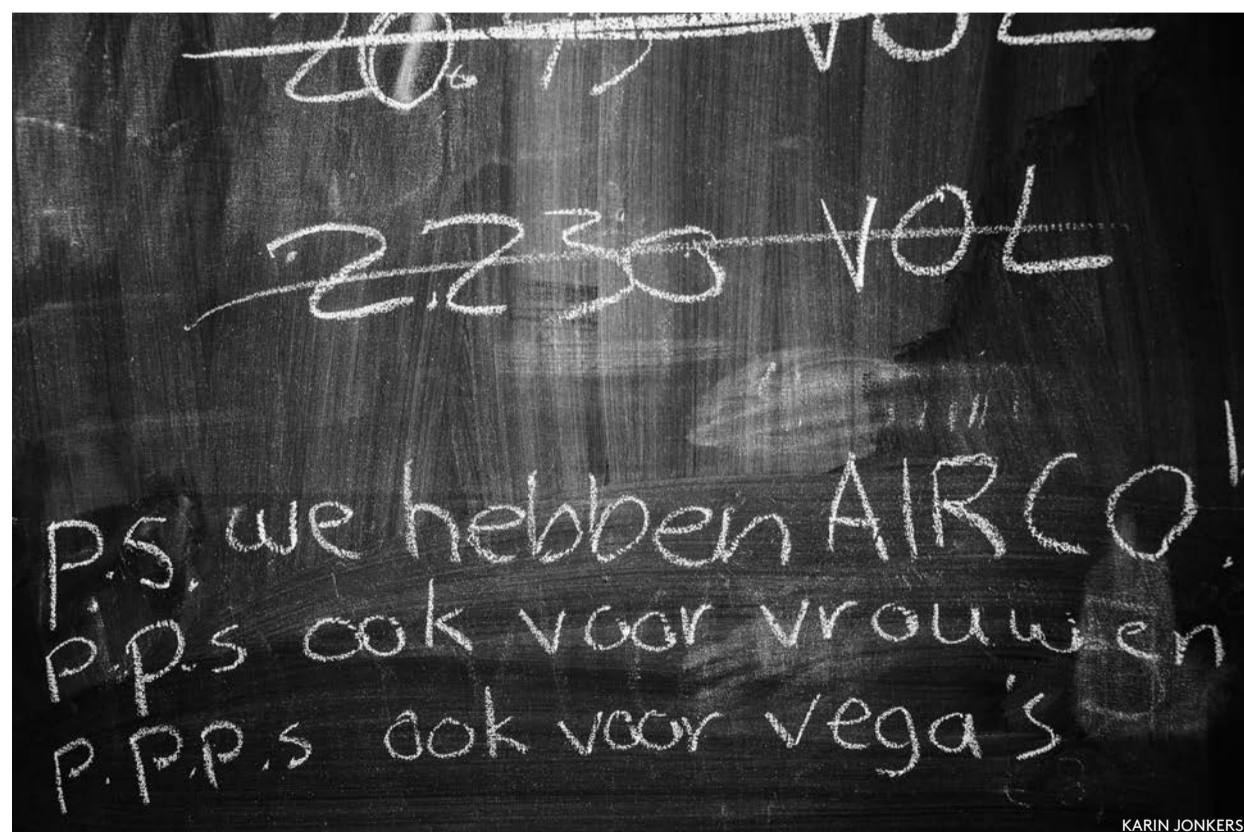 VOL
22.30 VOL
p.s. we hebben AIRCO!
p.p.s ook voor vrouwen
p.p.p.s ook voor vega's
KARIN JONKERS